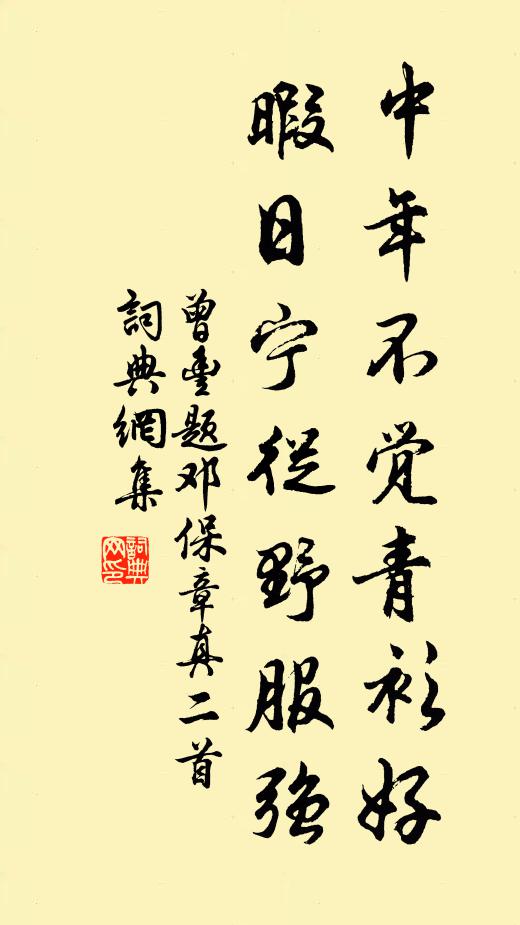 中年不觉青衫好
暇日宁從野服強
曾豐题邓保章真二首
詞典網集
詞典网印